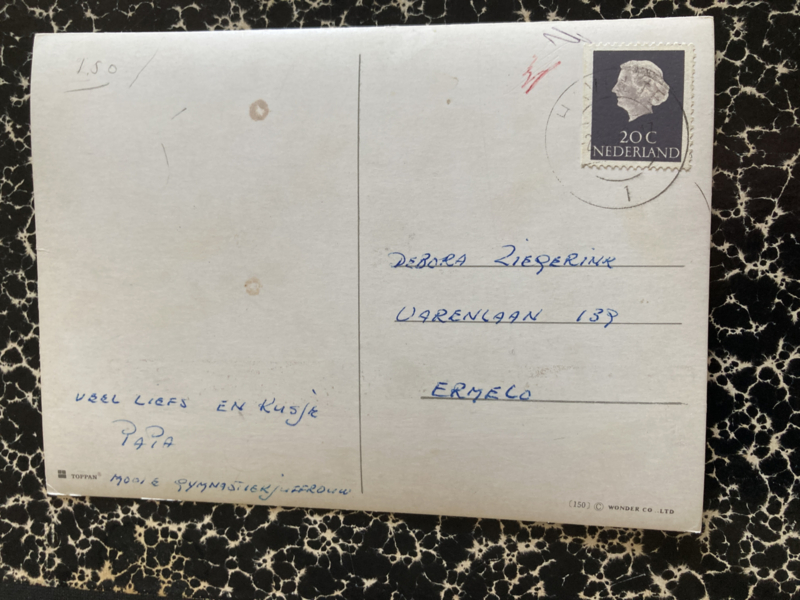 1.50
20 C
NEDERLAND
1
DEBORA ZIEGERINK
VARENLAAN 139
ERMELO
VEEL LIEFS EN KUSJE
PAPA
TOPPAN
MOOIE GYMNASTIEKJUFFROUW
(150) © WONDER CO. LTD